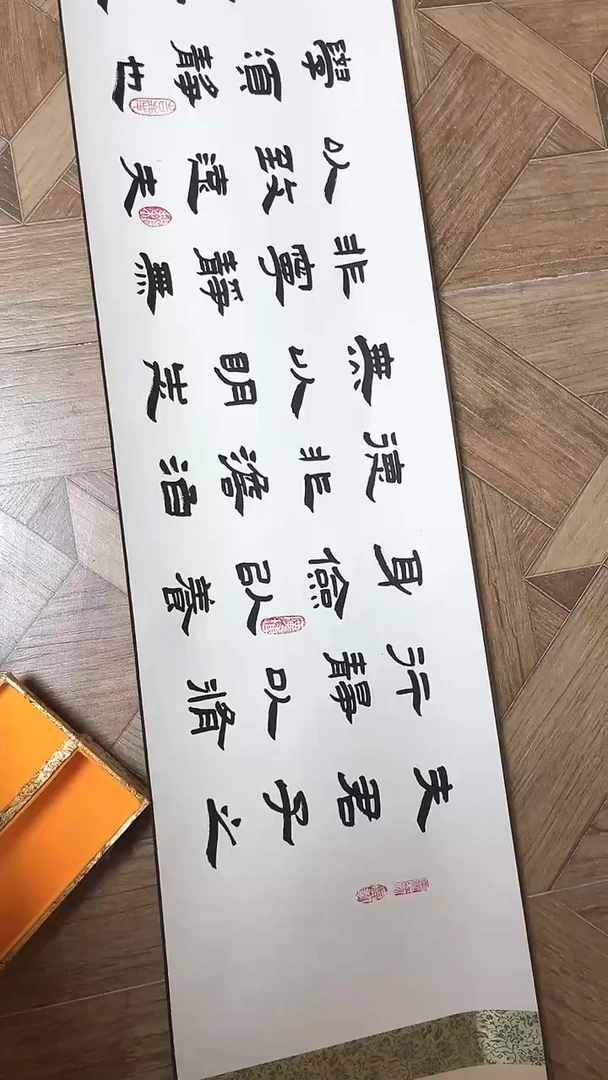 夫君子之
行靜以脩
身儉以養
德非澹泊
無以明志
非寧靜無
以致遠夫
學須靜也